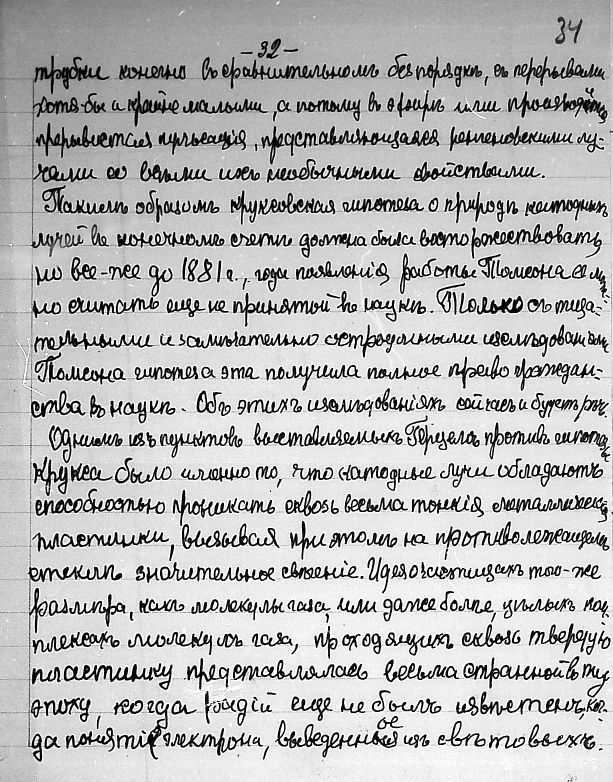 34
-32-
трубки конечно въ сравнительномъ безпорядкѣ, съ перерывами
хотя-бы и крайне малыми, а потому въ эфирѣ или
прерывистая пульсація, представляющаяся рентгеновскими лу-
чами со всѣми ихъ необычными свойствами.
Такимъ образомъ круксовская гипотеза о природѣ катодныхъ
лучей въ конечномъ счетѣ должна была восторжествовать,
но все-же до 1881 г., года появленія работы Томсона ее
но считать еще не принятой въ наукѣ. Только съ тща-
тельными и замѣчательно остроумными изслѣдованіями
Томсона гипотеза эта получила полное право граждан-
ства въ наукѣ. Объ этихъ изслѣдованіяхъ сейчасъ и будетъ рѣчь.
Однимъ изъ пунктовъ выставляемыхъ Герцемъ противъ гипотезы
Крукса было именно то, что катодные лучи обладаютъ
способностью проникать сквозь весьма тонкія металлическія
пластинки, вызывая при этомъ на противолежащемъ
стеклѣ значительное свѣченіе. Идея о частицахъ того-же
размѣра, какъ молекулы газа, или даже болѣе, цѣлыхъ ком-
плексахъ молекулъ газа, проходящихъ сквозь твердую
пластинку представлялась весьма странной въ ту
эпоху, когда радій еще не былъ извѣстенъ, ког-
да понятіе электрона, выведенное изъ свѣтовыхъ